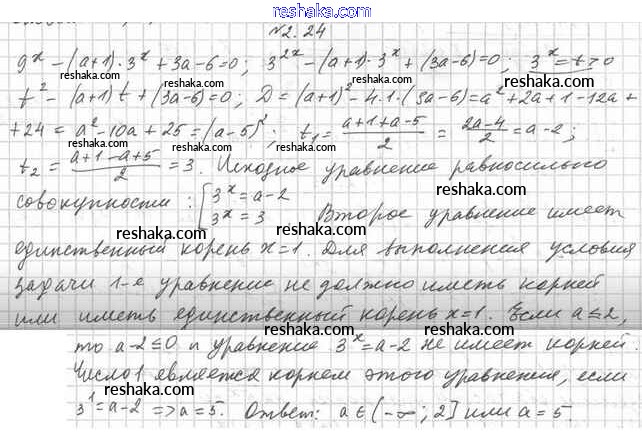 reshaka.ru
№2.24
9^x - (a+1)·3^x + 3a-6=0; 3^{2x} - (a+1)·3^x + (3a-6)=0; 3^x=t>0
t^2 - (a+1)t + (3a-6)=0; D=(a+1)^2 - 4·1·(3a-6)=a^2+2a+1-12a+
+24 = a^2-10a+25 = (a-5)^2; t_1 = (a+1+a-5)/2 = (2a-4)/2 = a-2;
t_2 = (a+1-a+5)/2 = 3. Исходное уравнение равносильно
совокупности: [3^x = a-2
3^x = 3 Второе уравнение имеет
единственный корень x=1. Для выполнения условия
задачи 1-е уравнение не должно иметь корней
или иметь единственный корень x=1. Если a≤2,
то a-2≤0 и уравнение 3^x=a-2 не имеет корней.
Число 1 является корнем этого уравнения, если
3^1=a-2 => a=5. Ответ: a∈(-∞; 2] или a=5.